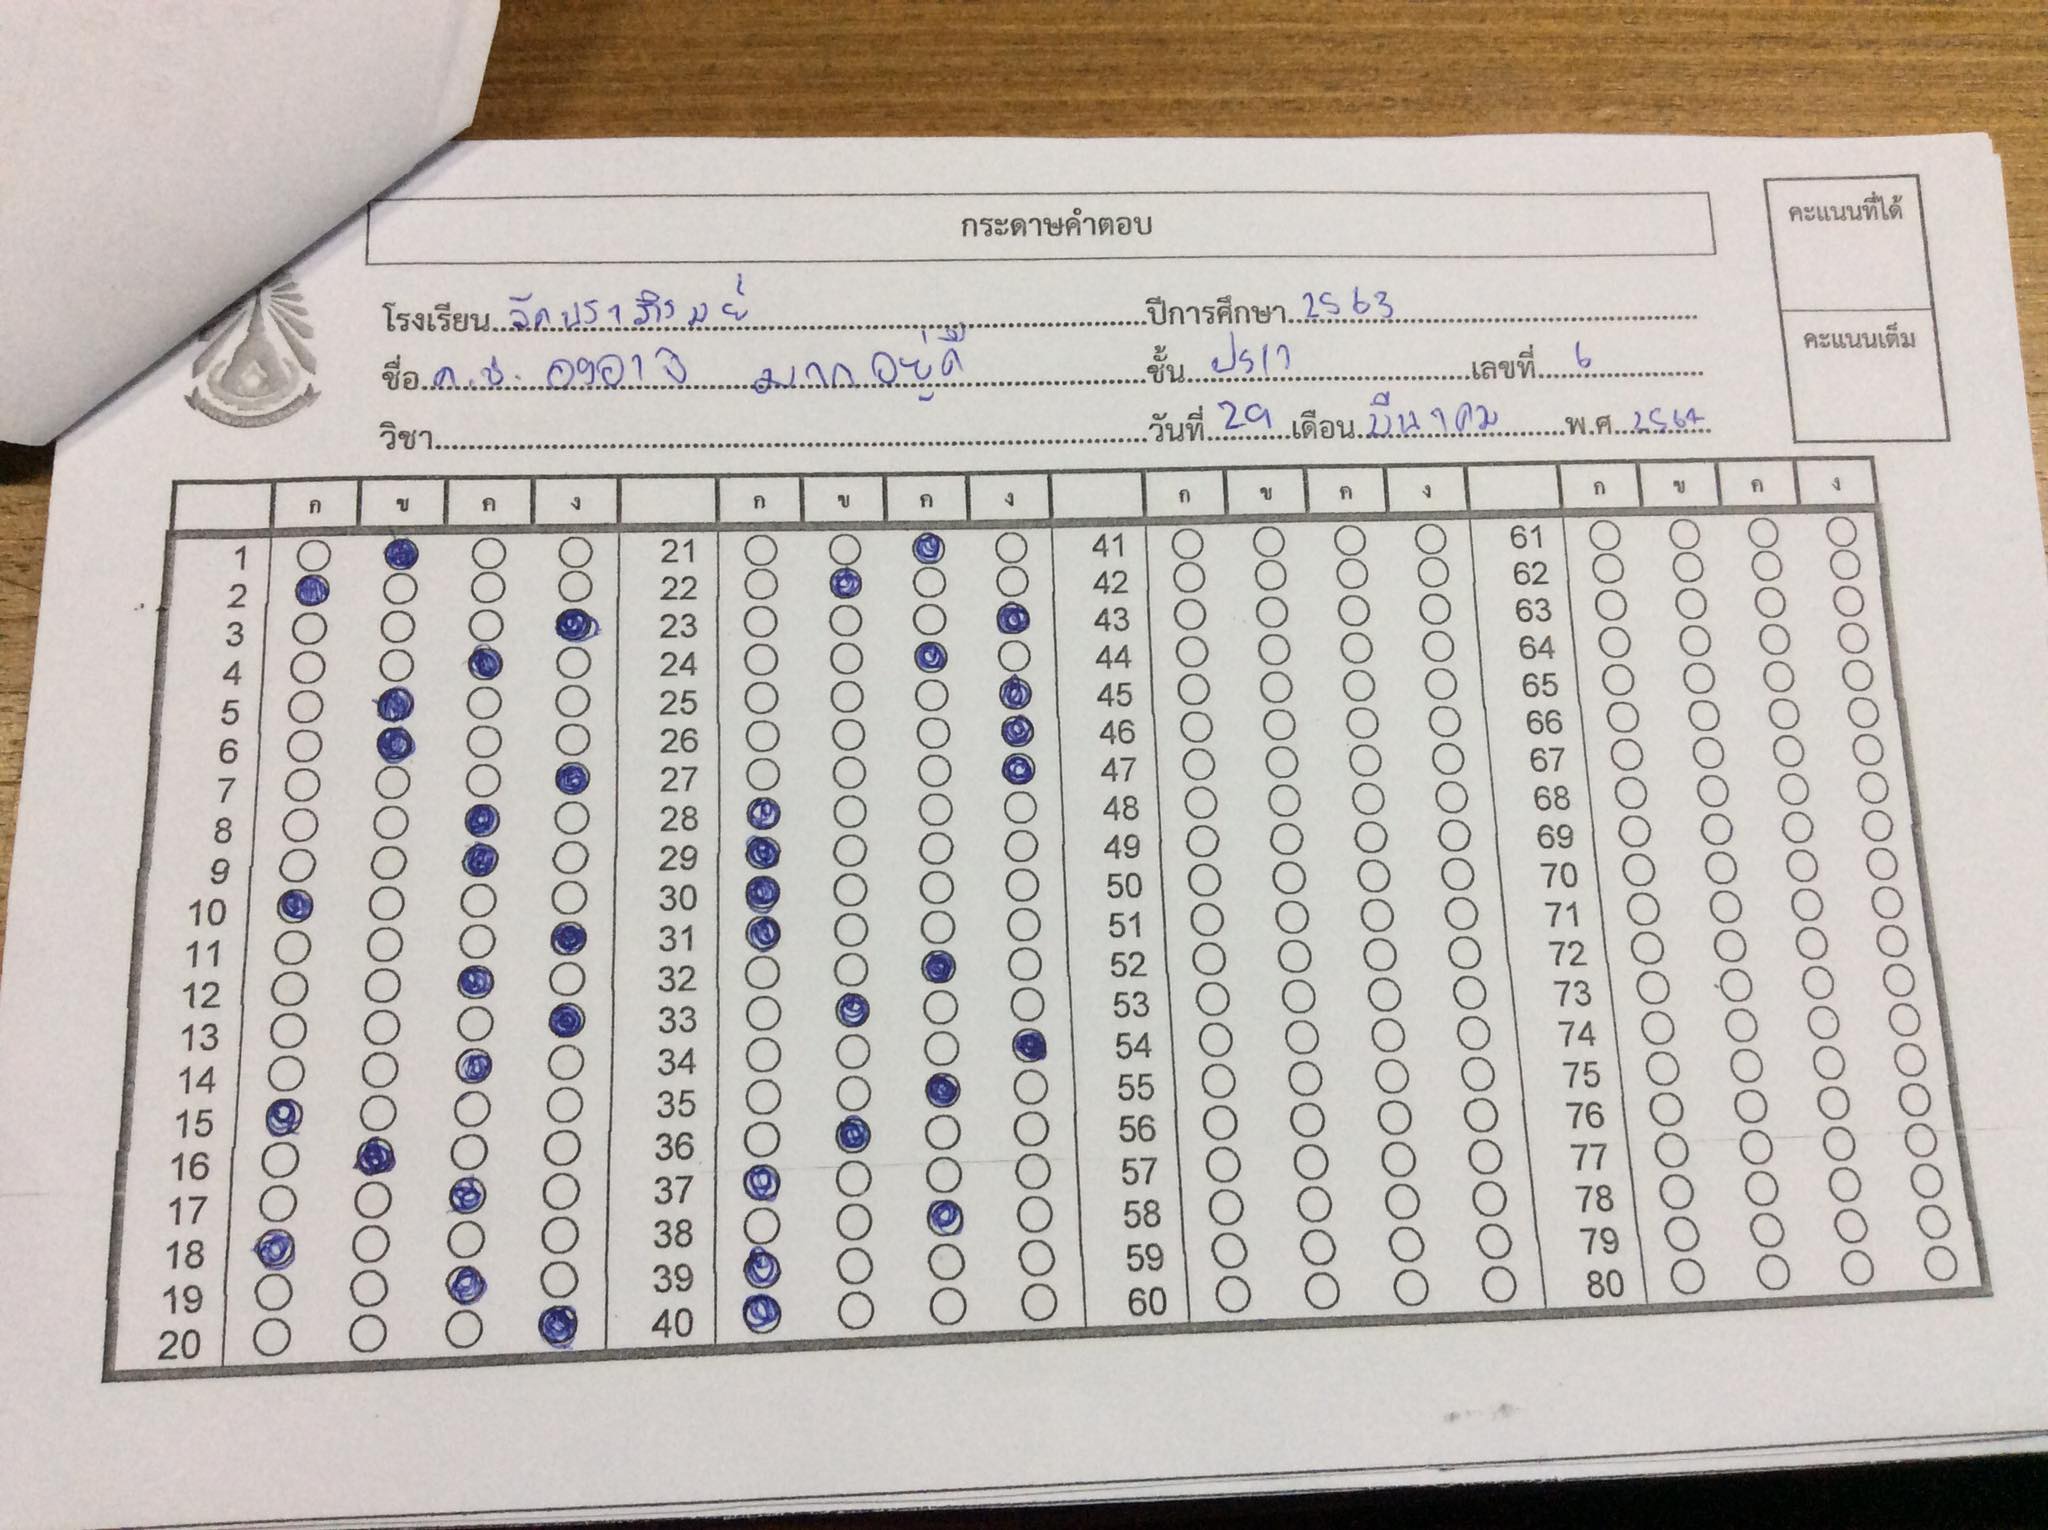 กระดาษคำตอบ
คะแนนที่ได้
คะแนนเต็ม
โรงเรียน ปีการศึกษา 2563
ชื่อ ด.ช. องอาจ มากอยู่ดี ชั้น เลขที่ 6
วิชา วันที่ 29 เดือน มีนาคม พ.ศ. 2564
ก ข ค ง ก ข ค ง ก ข ค ง ก ข ค ง
1 21 41 61
2 22 42 62
3 23 43 63
4 24 44 64
5 25 45 65
6 26 46 66
7 27 47 67
8 28 48 68
9 29 49 69
10 30 50 70
11 31 51 71
12 32 52 72
13 33 53 73
14 34 54 74
15 35 55 75
16 36 56 76
17 37 57 77
18 38 58 78
19 39 59 79
20 40 60 80